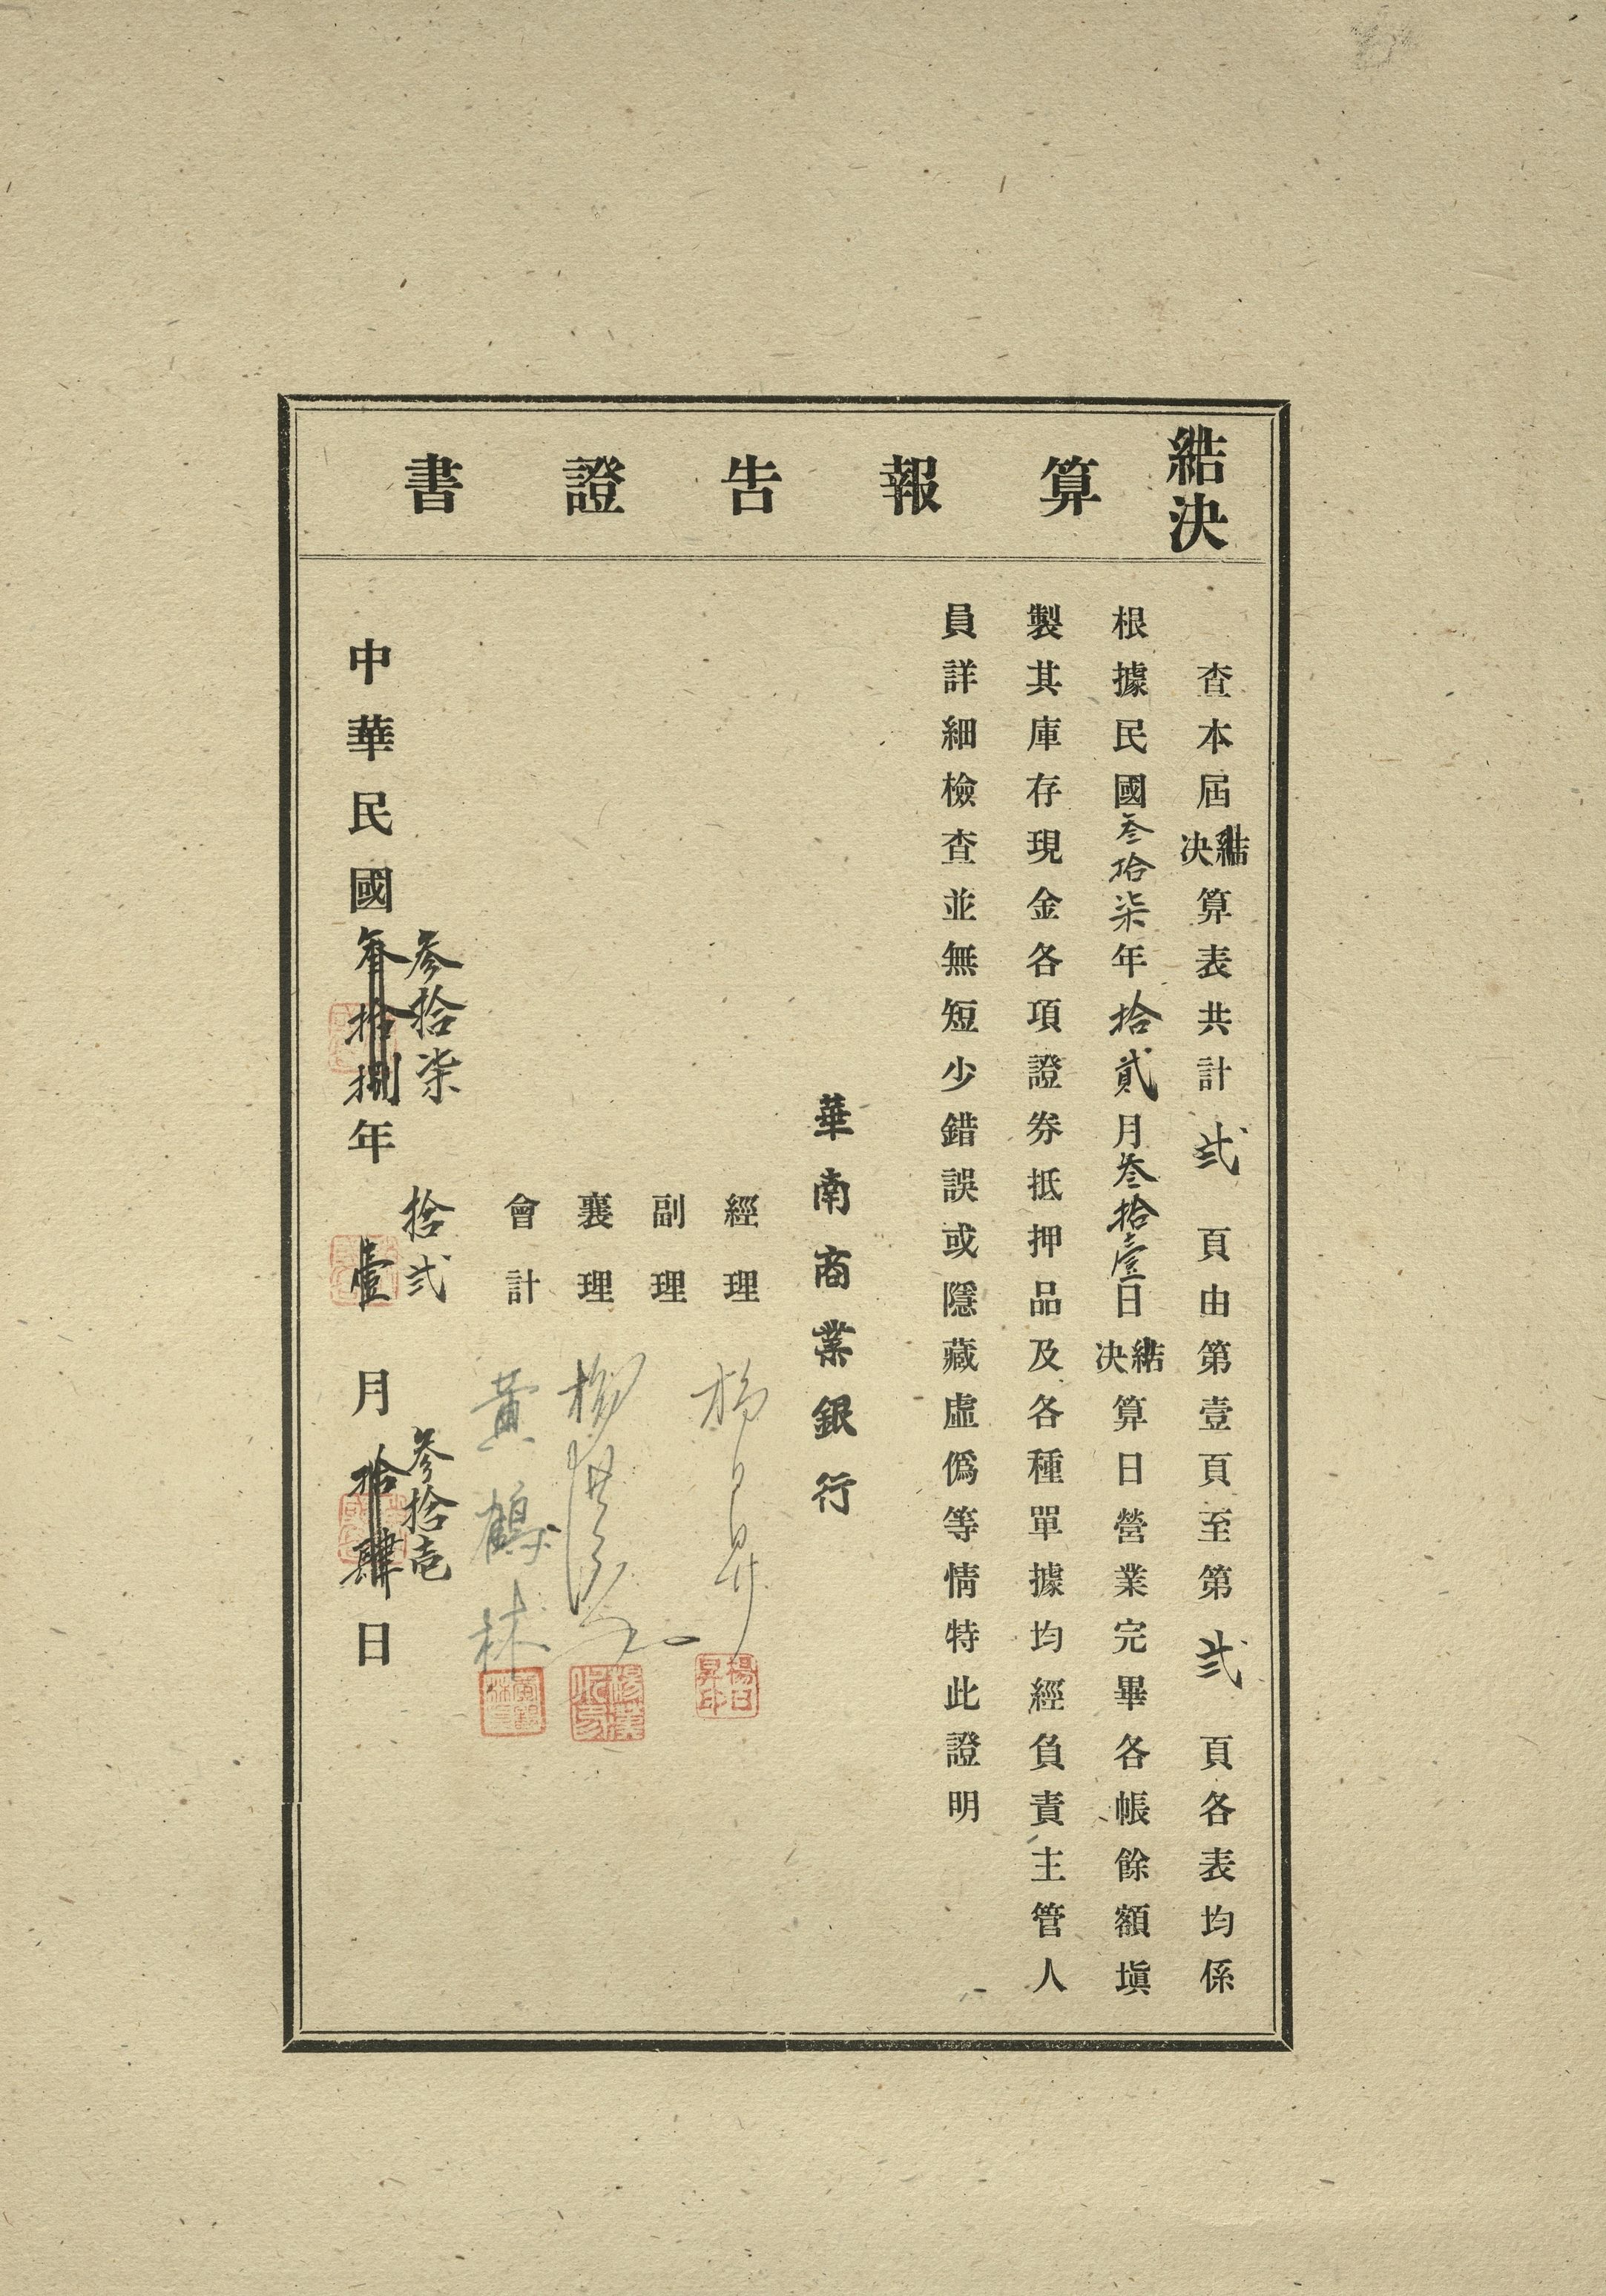 結決算報告證書
查本屆結決算表共計弍頁由第壹頁至第弍頁各表均係
根據民國叁拾柒年拾貳月叁拾壹日結決算日營業完畢各帳餘額塡
製其庫存現金各項證券抵押品及各種單據均經負責主管人
員詳細檢查並無短少錯誤或隱藏虛僞等情特此證明
華南商業銀行
經理 楊日昇
楊日昇印
副理
襄理 楊漢
會計 黃鶴林
參拾柒 拾弍 參拾壱
中華民國參拾捌年壹月拾肆日